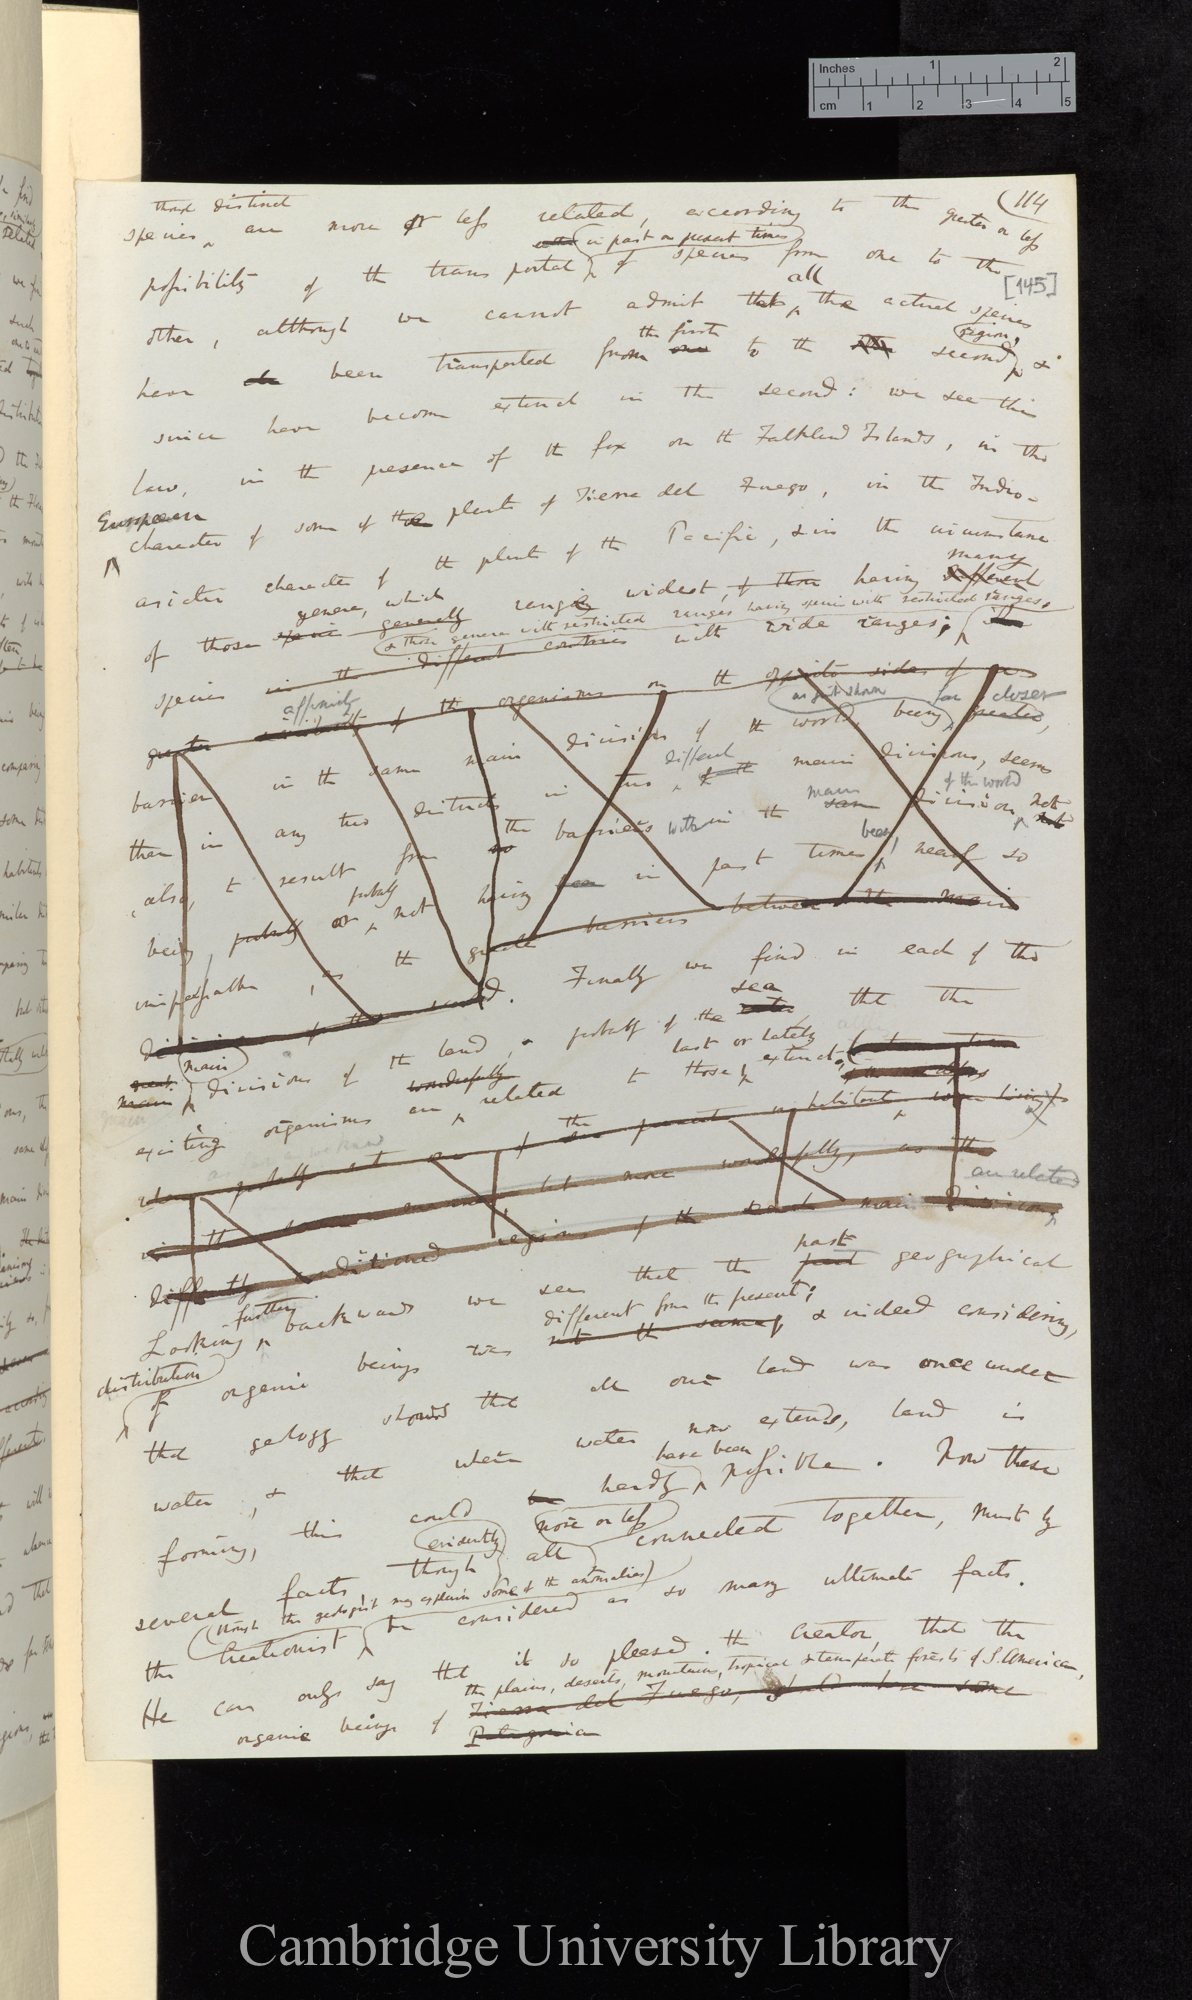 Inches 1 2
cm 1 2 3 4 5
114
[145]
though distinct
species are more or less related, according to the greater or less
in past or present times
possibility of the transportal of species from one to the
all
other, although we cannot admit that the actual species
the first
region,
have been transported from one to the second, &
since have become extinct in the second: we see this
law, in the presence of the fox on the Falkland Islands, in the
European
character of some of the plants of Tierra del Fuego, in the Indo-
asiatic character of the plants of the Pacific, & in the circumstance
many
genera, which
of those species generally range widest, of them having different
& those genera with restricted ranges having species with restricted ranges.
species in the different countries with wide ranges;
affinity
greater of the organisms on the opposite sides of
as just shown
far closer
barriers in the same main divisions of the world, being greater,
different
than in any two districts in two of the main divisions, seems
main
of the world
also, to result from the barriers within the same division not
probably
been
being, probably or not having been in past times, nearly so
impassable, as the great barriers between the main
divisions of the world. Finally we find in each of the
sea
main
great main divisions of the land, & probably of the that the
last or lately
existing organisms are wonderfully related to those extinct,
are related
in the
differently conditioned regions of the main divisions
further
past
Looking backwards we see that the past geographical
different from the present;
distribution
of organic beings was not the same, & indeed considering,
that geology shows that all our land was once under
water, & that where water now extends, land is
have been
forming, this could hardly possible. Now these
evidently
more or less
several facts, though all connected together, must by
(though the geologist may explain some of the anomalies)
the Creationist be considered as so many ultimate facts.
He can only say that it so pleased the Creator, that the
the plains, deserts, mountains, tropical & temperate forests of S. American,
organic beings of Tierra del Fuego, some
Patagonia
Cambridge University Library